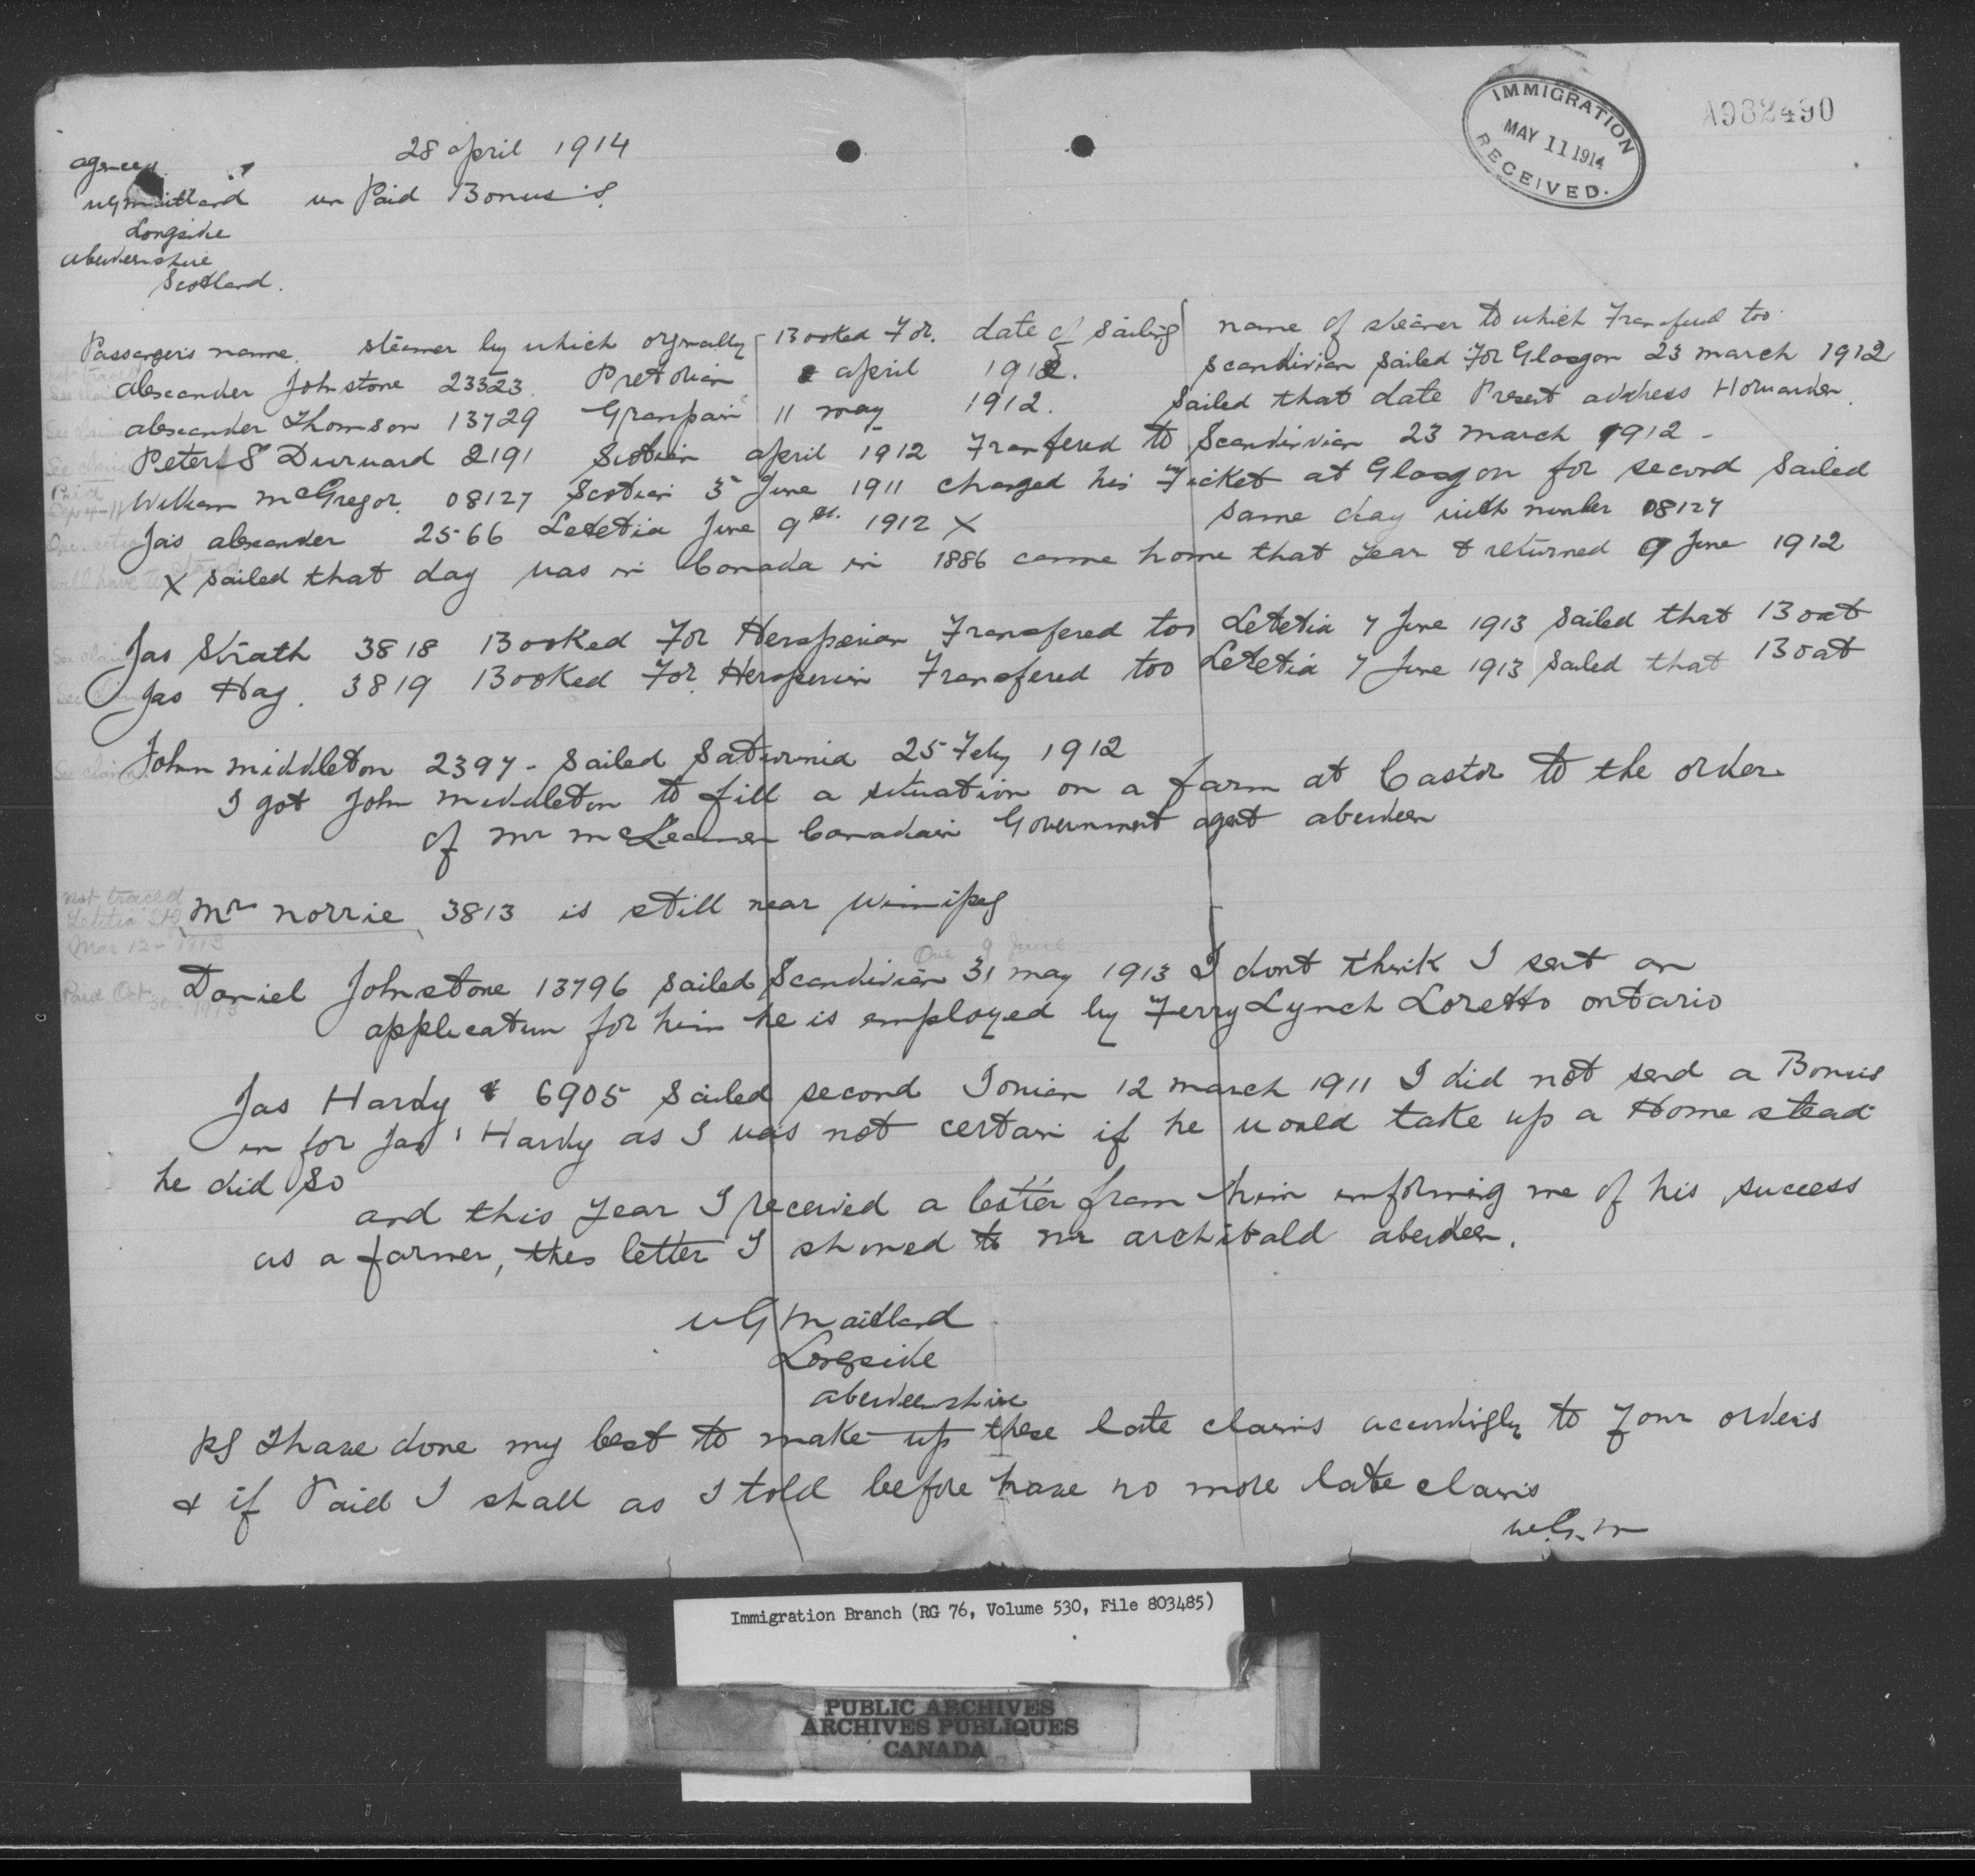 IMMIGRATION
MAY 11 1914
RECEIVED.
A982490
28 april 1914
agency
W G Maitland un Paid Bonus's
Longside
aberdeenshire
Scotland.
Passengers name. steamer by which orginally Booked For. date of sailing name of steamer to which Transfered too
alexander Johnstone 23323. Pretorian april 1912. Scandivian sailed For Glasgon 23 march 1912
alexander Thomson 13729 Grampain 11 may 1912. Sailed that date Present address Howarden.
See claim Peter S Durward 2191 Scotian april 1912 Transfered to Scandinvian 23 march 1912 -
Paid Sep 4-11 William McGregor. 08127 Scotian 3 June 1911 changed his Ticket at Glasgon for second Sailed
same day with number 08127
Jas alexander 2566 Letetia June 9th. 1912 X
X sailed that day was in Canada in 1886 came home that year & returned 9 June 1912
See claim Jas Strath 3818 Booked For Hersperian Transfered too Letetia 7 June 1913 Sailed that Boat
See claim Jas Hay. 3819 Booked For Hersperian Transfered too Letetia 7 June 1913 Sailed that Boat
See claim John Middleton 2397 - Sailed Saturnia 25 Feby 1912
I got John Middleton to fill a situation on a farm at Castor to the order
of Mr McLeannen Canadain Government agent aberdeen
not traced
Letitia
Mar 12 - 1913
Mr Norrie 3813 is still near Winnipeg
One 9 June
Paid Oct 30 - 1913
Daniel Johnstone 13796 Sailed Scandivian 31 may 1913 I dont think I sent an
application for him he is employed by Terry Lynch Loretto ontario
Jas Hardy 6905 Sailed second Ionian 12 march 1911 I did not send a Bonus
in for Jas Hardy as I was not certain if he would take up a Home stead
he did so
and this year I received a letter from him imforming me of his success
as a farmer, thes letter I showed to Mr archibald aberdeen.
W G Maitland
Longside
aberdeenshire
PS I have done my best to make up these late claims accordingly to your orders
& if Paid I shall as I told before have no more late claims
W.G.M
Immigration Branch (RG 76, Volume 530, File 803485)
PUBLIC ARCHIVES
ARCHIVES PUBLIQUES
CANADA